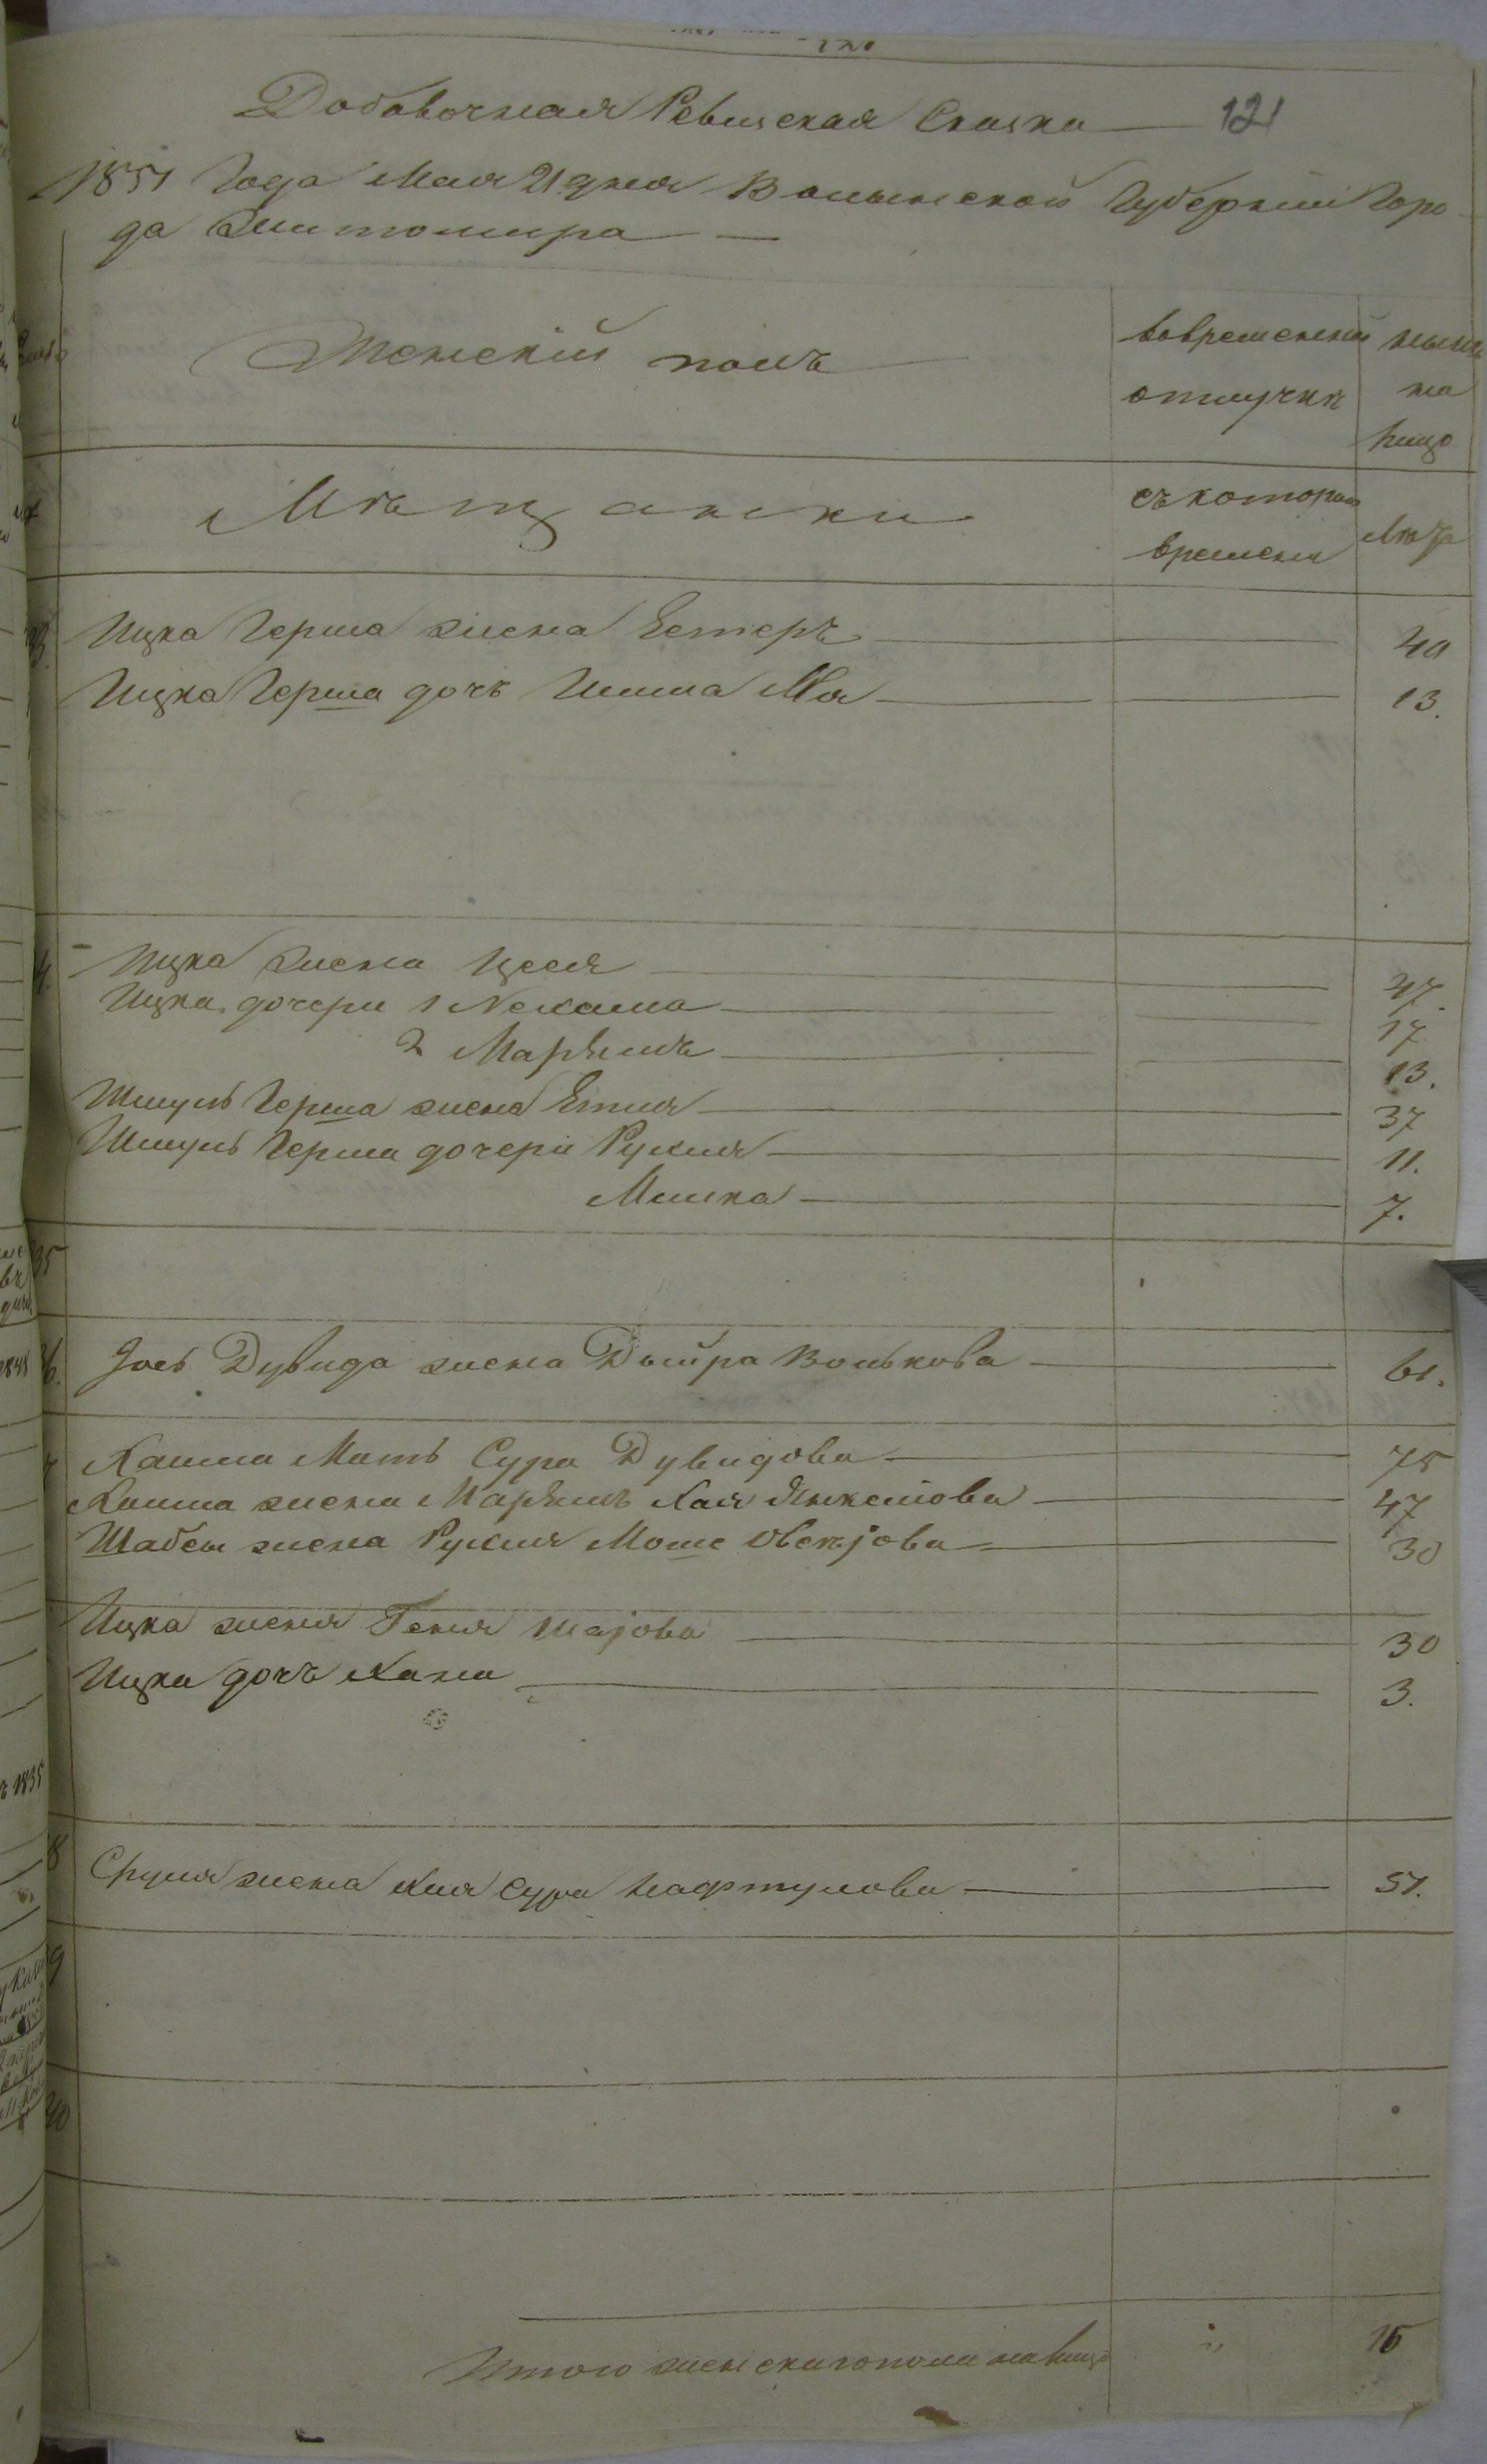 Добавочная Ревизская Сказка 121
1851 Года Мая 21 дня Волынской Губернии Горо
да Житомира
Женскiй полъ
вовременной
отлучкѣ
нынѣ
на
лицо
Мѣщанки
съ котораго
времени
Лѣта
33. Ицка Герша жена Естеръ 40
Ицка Герша дочь 13.
4. Ицка жена Цесля 47.
Ицка дочери 1 Нехама 17
2 Марьямъ 13.
Шмуль Герша жена Етля 37
Шмуль Герша дочери Рухля 11.
Малка 7.
35
6. Iось Дувида жена Двойра Волькова 61.
7 Хаима Мать Сура Дувидова 75
Хаима жена Марьямъ Хая Янкелiова 47
Шабса жена Рухля Моше Овсеjова 30
Ицка жена Геня Шаjова 30
Ицка дочь Хана 3.
8 Сруля жена Хая Сура Нафтулова 51.
9
40
Итого женскаго пола налицо „ 15